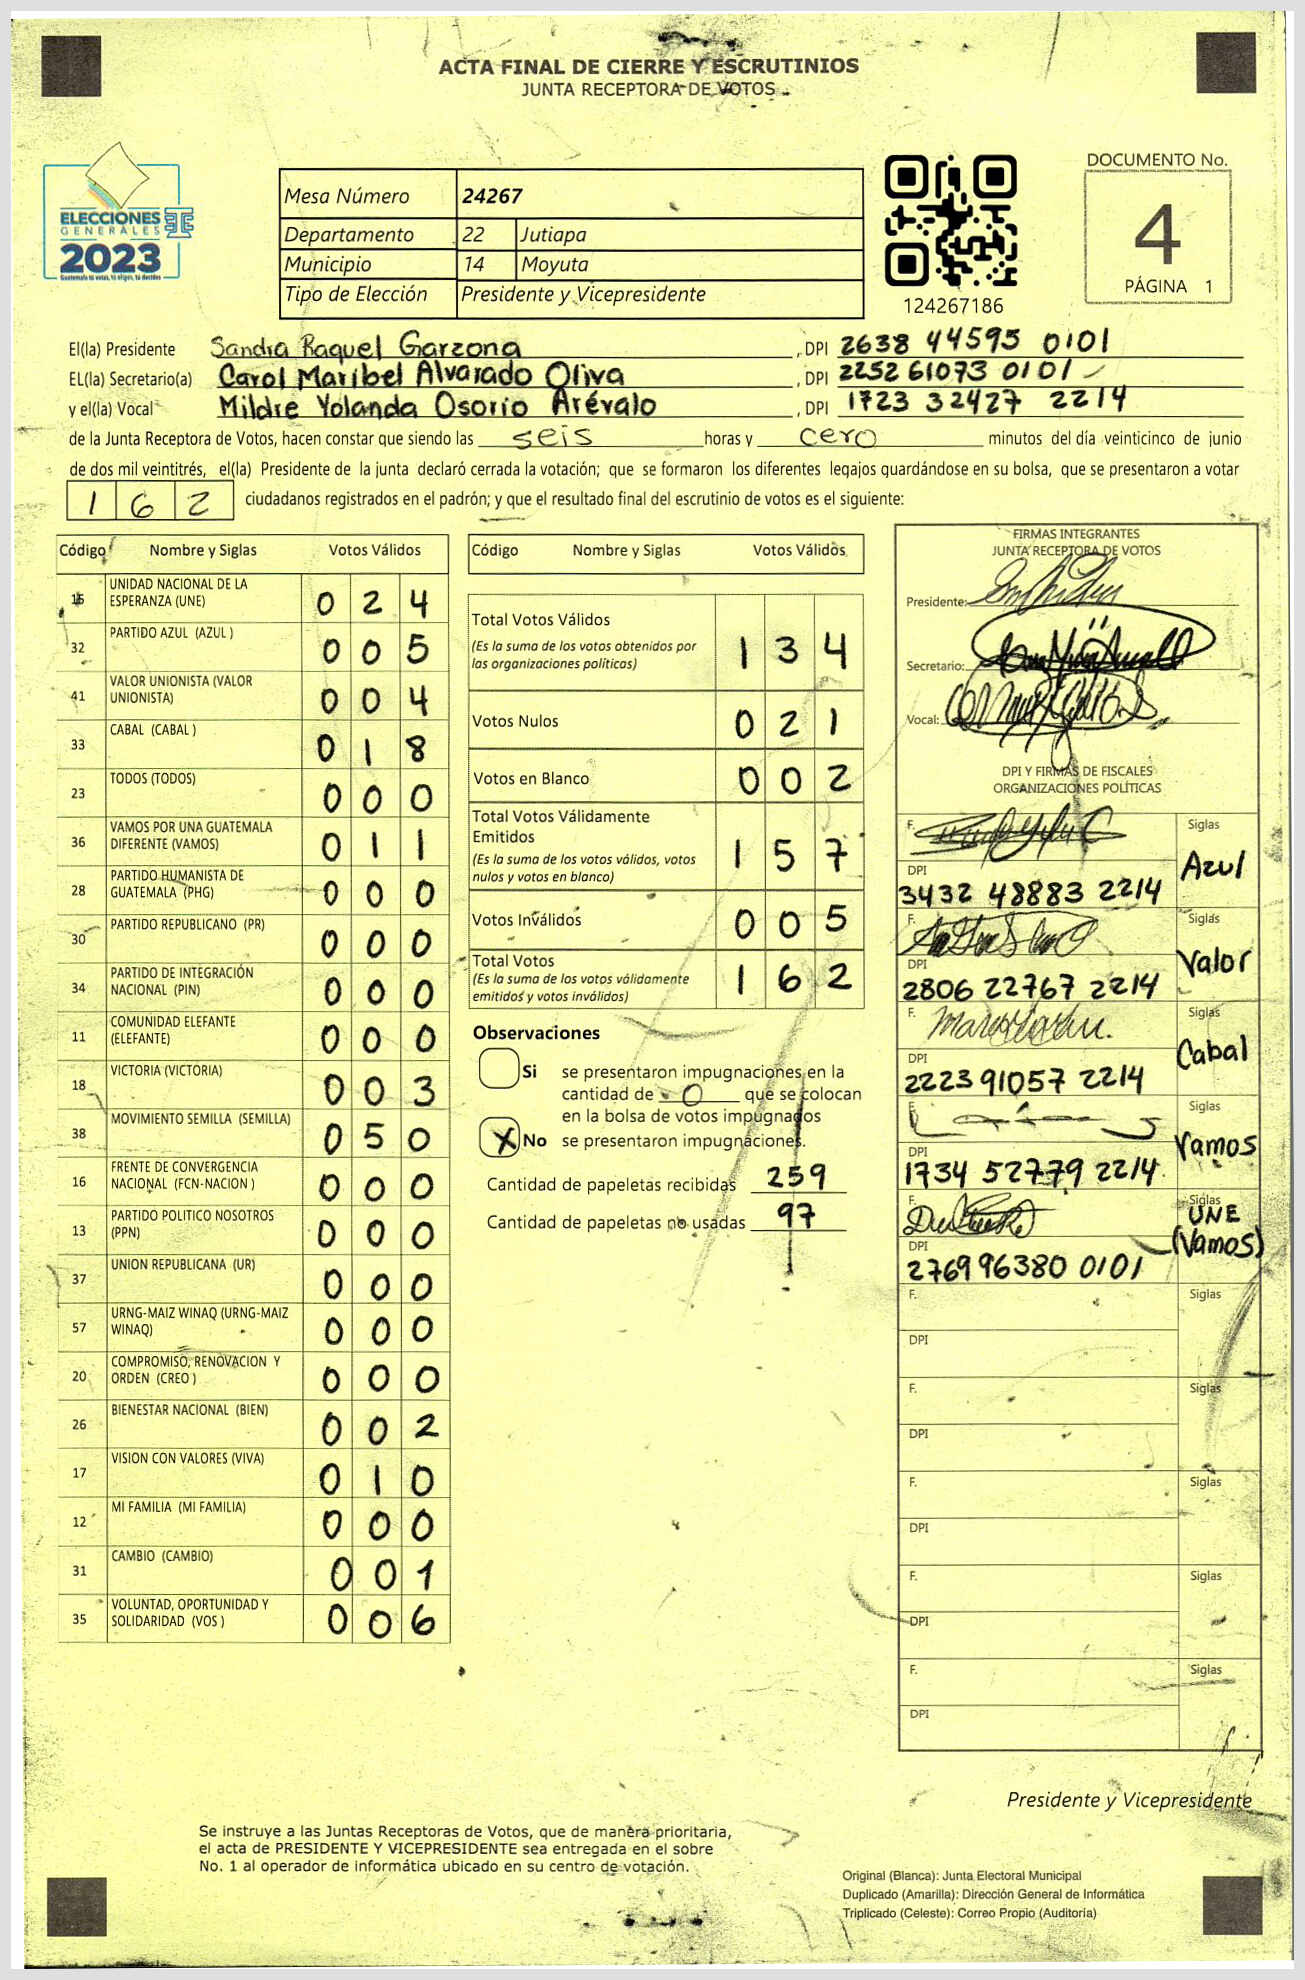 ACTA FINAL DE CIERRE Y ESCRUTINIOS
JUNTA RECEPTORA DE VOTOS
ELECCIONES
GENERALES
2023
Guatemala tú votas, tú eliges, tú decides
Mesa Número 24267
Departamento 22 Jutiapa
Municipio 14 Moyuta
Tipo de Elección Presidente y Vicepresidente
124267186
DOCUMENTO No.
4
PÁGINA 1
El(la) Presidente Sandra Raquel Garzona , DPI 2638 44595 0101
EL(la) Secretario(a) Carol Maribel Alvarado Oliva , DPI 2252 61073 0101
y el(la) Vocal Mildre Yolanda Osorio Arévalo , DPI 1723 32427 2214
de la Junta Receptora de Votos, hacen constar que siendo las seis horas y cero minutos del día veinticinco de junio
de dos mil veintitrés, el(la) Presidente de la junta declaró cerrada la votación; que se formaron los diferentes legajos guardándose en su bolsa, que se presentaron a votar
162 ciudadanos registrados en el padrón; y que el resultado final del escrutinio de votos es el siguiente:
Código Nombre y Siglas Votos Válidos
15 UNIDAD NACIONAL DE LA ESPERANZA (UNE) 0 2 4
32 PARTIDO AZUL (AZUL ) 0 0 5
41 VALOR UNIONISTA (VALOR UNIONISTA) 0 0 4
33 CABAL (CABAL ) 0 1 8
23 TODOS (TODOS) 0 0 0
36 VAMOS POR UNA GUATEMALA DIFERENTE (VAMOS) 0 1 1
28 PARTIDO HUMANISTA DE GUATEMALA (PHG) 0 0 0
30 PARTIDO REPUBLICANO (PR) 0 0 0
34 PARTIDO DE INTEGRACIÓN NACIONAL (PIN) 0 0 0
11 COMUNIDAD ELEFANTE (ELEFANTE) 0 0 0
18 VICTORIA (VICTORIA) 0 0 3
38 MOVIMIENTO SEMILLA (SEMILLA) 0 5 0
16 FRENTE DE CONVERGENCIA NACIONAL (FCN-NACION ) 0 0 0
13 PARTIDO POLITICO NOSOTROS (PPN) 0 0 0
37 UNION REPUBLICANA (UR) 0 0 0
57 URNG-MAIZ WINAQ (URNG-MAIZ WINAQ) 0 0 0
20 COMPROMISO, RENOVACION Y ORDEN (CREO ) 0 0 0
26 BIENESTAR NACIONAL (BIEN) 0 0 2
17 VISION CON VALORES (VIVA) 0 1 0
12 MI FAMILIA (MI FAMILIA) 0 0 0
31 CAMBIO (CAMBIO) 0 0 1
35 VOLUNTAD, OPORTUNIDAD Y SOLIDARIDAD (VOS ) 0 0 6
Código Nombre y Siglas Votos Válidos
Total Votos Válidos 1 3 4
(Es la suma de los votos obtenidos por
las organizaciones políticas)
Votos Nulos 0 2 1
Votos en Blanco 0 0 2
Total Votos Válidamente
Emitidos 1 5 7
(Es la suma de los votos válidos, votos
nulos y votos en blanco)
Votos Inválidos 0 0 5
Total Votos 1 6 2
(Es la suma de los votos válidamente
emitidos y votos inválidos)
Observaciones
Si se presentaron impugnaciones en la
cantidad de 0 que se colocan
en la bolsa de votos impugnados
X No se presentaron impugnaciones.
Cantidad de papeletas recibidas 259
Cantidad de papeletas no usadas 97
FIRMAS INTEGRANTES
JUNTA RECEPTORA DE VOTOS
Presidente:
Secretario:
Vocal:
DPI Y FIRMAS DE FISCALES
ORGANIZACIONES POLÍTICAS
F. Siglas
Azul
DPI
3432 48883 2214
F. Siglas
Valor
DPI
2806 22767 2214
F. Siglas
Cabal
DPI
2223 91057 2214
F. Siglas
Vamos
DPI
1734 52779 2214
F. Siglas
UNE
(Vamos)
DPI
2769 96380 0101
F. Siglas
DPI
F. Siglas
DPI
F. Siglas
DPI
F. Siglas
DPI
F. Siglas
DPI
Presidente y Vicepresidente
Se instruye a las Juntas Receptoras de Votos, que de manera prioritaria,
el acta de PRESIDENTE Y VICEPRESIDENTE sea entregada en el sobre
No. 1 al operador de informática ubicado en su centro de votación.
Original (Blanca): Junta Electoral Municipal
Duplicado (Amarilla): Dirección General de Informática
Triplicado (Celeste): Correo Propio (Auditoría)